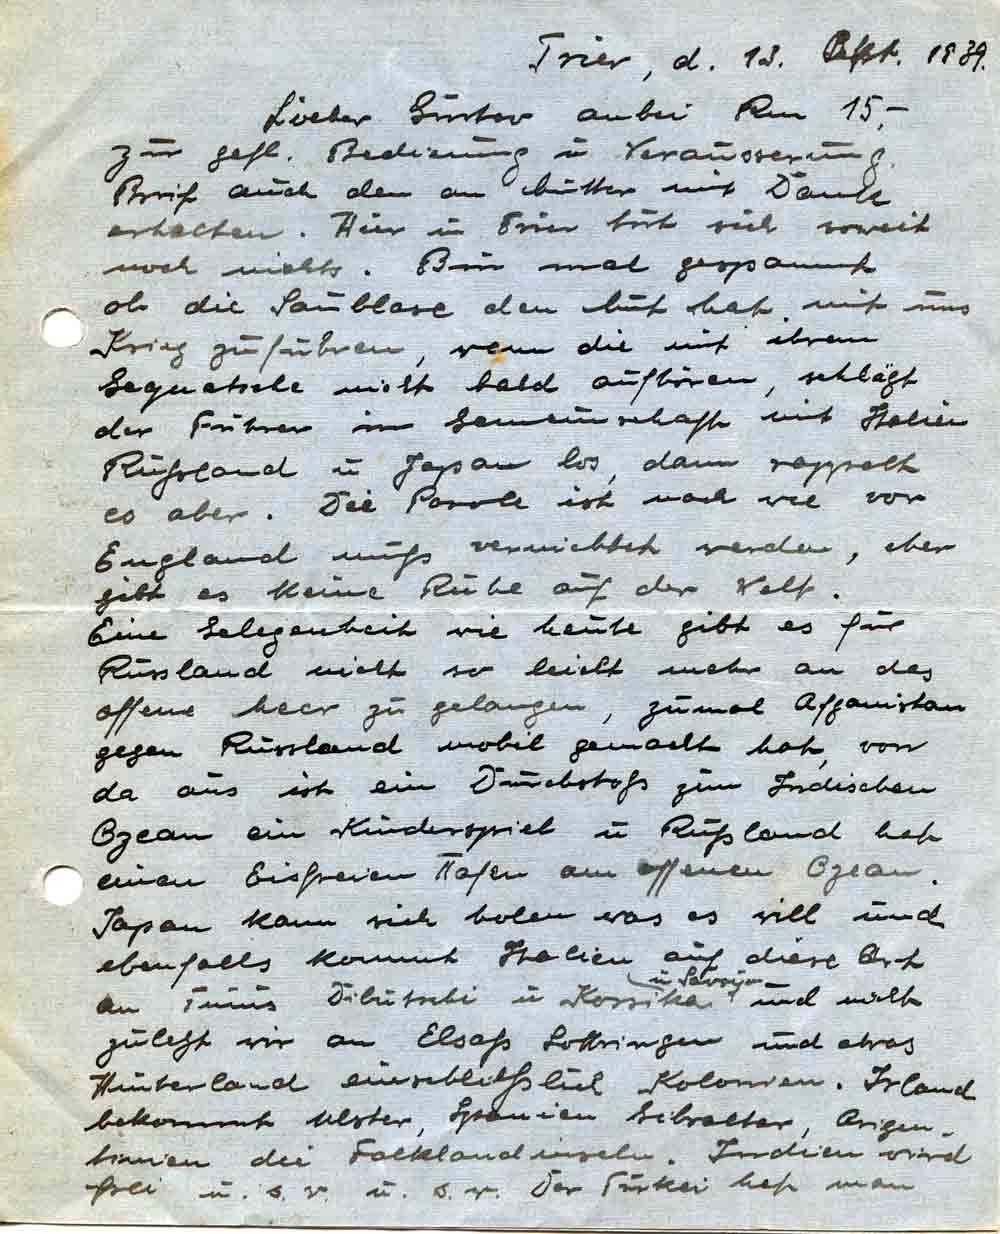 Trier, d. 13. Okt. 1939.
Lieber Günter anbei Rm 15,-
zur gefl. Bedienung u Verausserung.
Brief auch den an Mutter mit Dank
erhalten. Hier in Trier tut sich soweit
noch nichts. Bin mal gespannt
ob die Saublase den Mut hat mit uns
Krieg zu führen, wenn die mit ihrem
Gequatsche nicht bald aufhören, schlägt
der Führer in Gemeinschaft mit Italien
Rußland u Japan los, dann rappelt
es aber. Die Parole ist nach wie vor
England muß vernichtet werden, eher
gibt es keine Ruhe auf der Welt.
Eine Gelegenheit wie heute gibt es für
Russland nicht so leicht mehr an das
offene Meer zu gelangen, zumal Afganistan
gegen Russland mobil gemacht hat, von
da aus ist ein Durchstoß zum Indischen
Ozean ein Kinderspiel u Rußland hat
einen Eisfreien Hafen am offenen Ozean.
Japan kann sich holen was es will und
ebenfalls kommt Italien auf diese Art
an Tunis Dibutschi u Korsika u Savoyen und nicht
zuletzt wir an Elsaß Lottringen und etwas
Hinterland einschließlich Kolonien. Irland
bekommt Ulster, Spanien Gibralter, Argen-
tinien die Falklandinseln. Indien wird
frei u. s. w. u. s. w. Der Türkei hat man